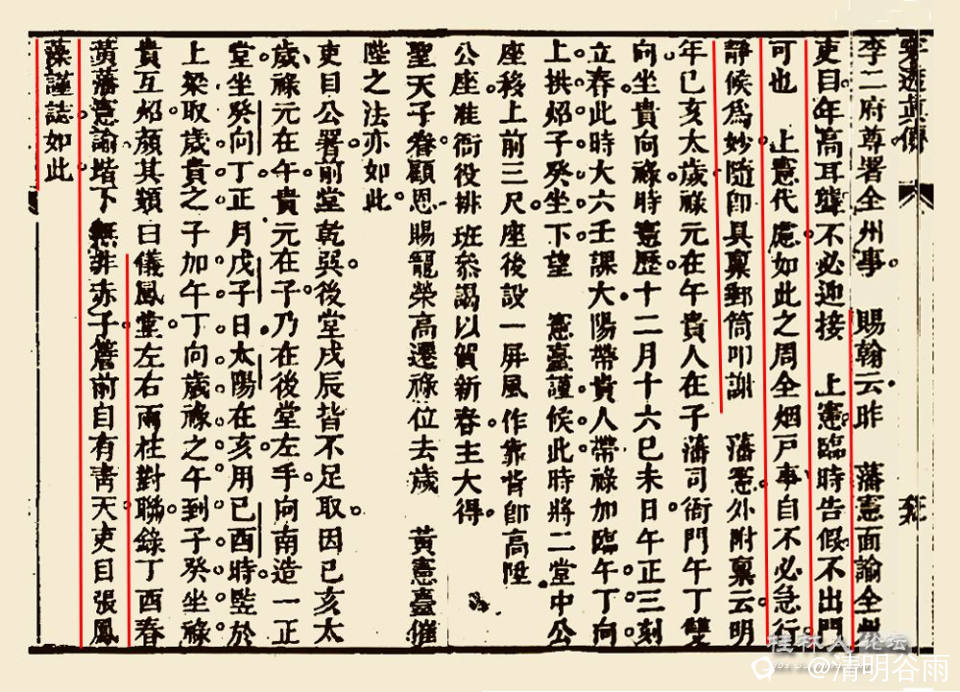 李二府尊署全州事　賜翰云昨　藩憲面諭全州
吏目年高耳聾不必迎接　上憲臨時告假不出門
可也　上憲代慮如此之周全烟戶事自不必急行
靜候爲妙隨卽具稟郵筒叩謝　藩憲外附稟云明
年已亥太歲祿元在午貴人在子藩司衙門午丁雙
向坐貴向祿時憲歷十二月十六巳未日午正三刻
立春此時大六壬課大陽帶貴人帶祿加臨午丁向
上拱炤子癸坐下望　憲臺謹候此時將二堂中公
座移上前三尺座後設一屛風作靠背卽高陞
公座准衙役排班叅謁以賀新春主大得
聖天子眷顧恩賜寵榮高遷祿位去歲　黃憲臺催
陞之法亦如此
吏目公署前堂乾巽後堂戌辰皆不足取因已亥太
歲祿元在午貴元在子乃在後堂左手向南造一正
堂坐癸向丁正月戊子日太陽在亥用已酉時竪於
上梁取歲貴之子加午丁向歲祿之午到子癸坐祿
貴互炤顏其類曰儀鳳堂左右兩柱對聯錄丁酉春
黃藩憲諭堦下無非赤子簷前自有靑天吏目張鳳
藻謹誌如此
桂林人论坛
@清明谷雨